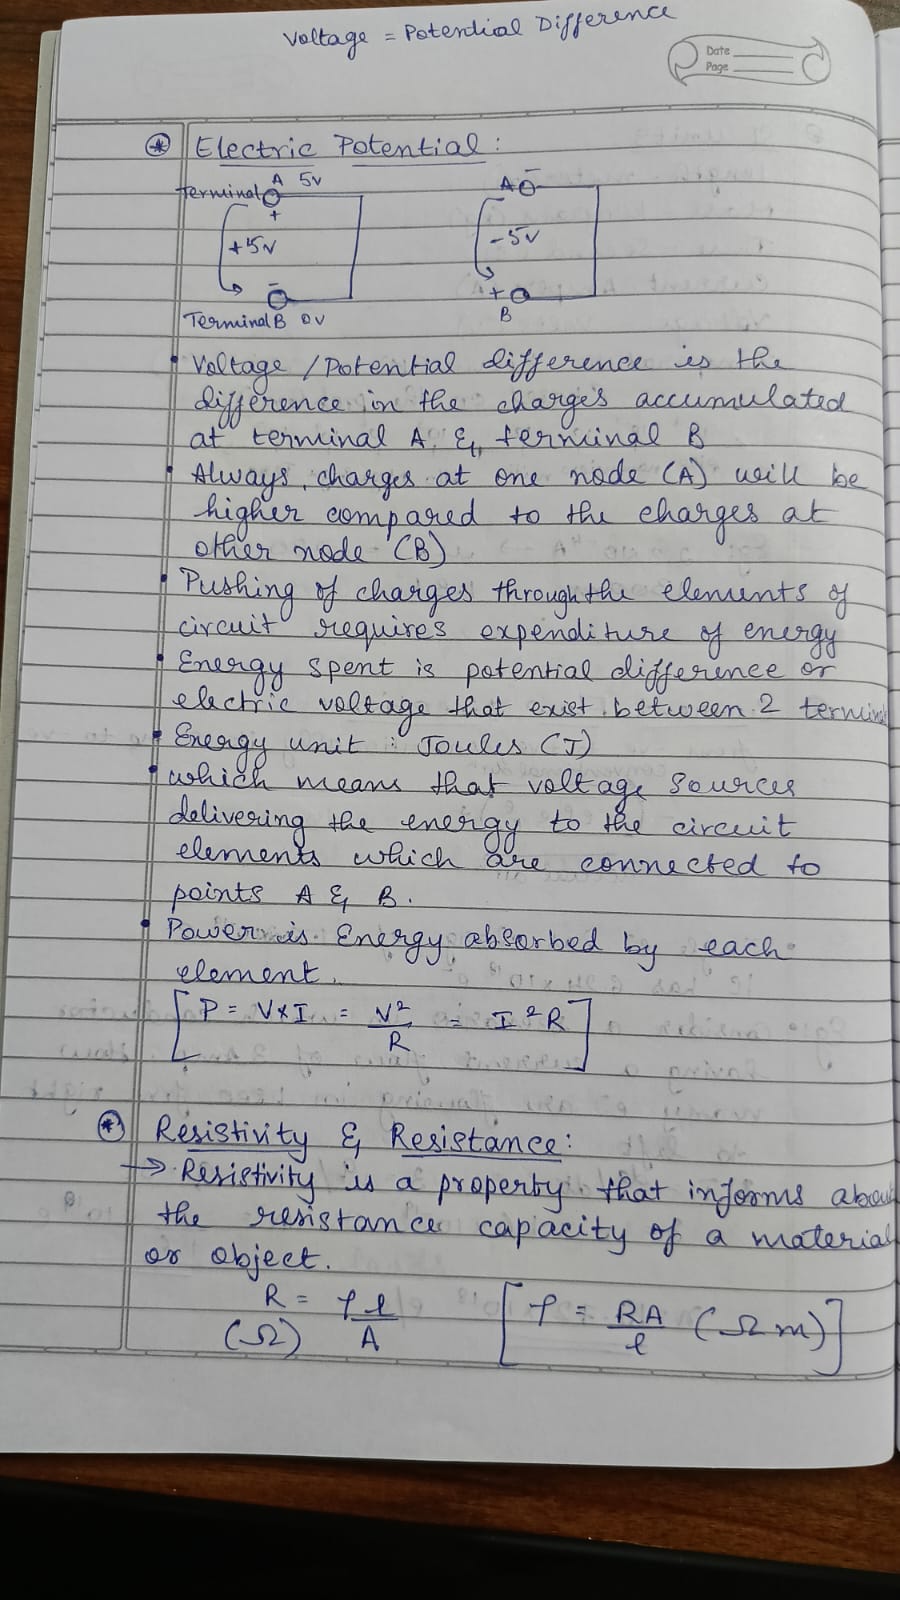 Voltage = Potential Difference
Date
Page
* Electric Potential :
A 5V
Terminal
+
+5V
-
Terminal B 0V
A -
-5V
+
B
• Voltage / Potential difference is the
difference in the charges accumulated
at terminal A & terminal B
• Always, charges at one node (A) will be
higher compared to the charges at
other node (B)
• Pushing of charges through the elements of
circuit requires expenditure of energy
• Energy spent is potential difference or
electric voltage that exist between 2 termin
• Energy unit : Joules (J)
• which means that voltage sources
delivering the energy to the circuit
elements which are connected to
points A & B.
• Power is Energy absorbed by each
element.
[P = V*I = V²/R = I²R]
* Resistivity & Resistance :
→ Resistivity is a property that informs about
the resistance capacity of a material
or object.
R = ρl/A [ρ = RA/l (Ωm)]
(Ω)